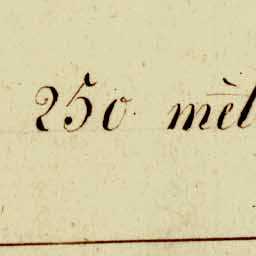 250 mèt